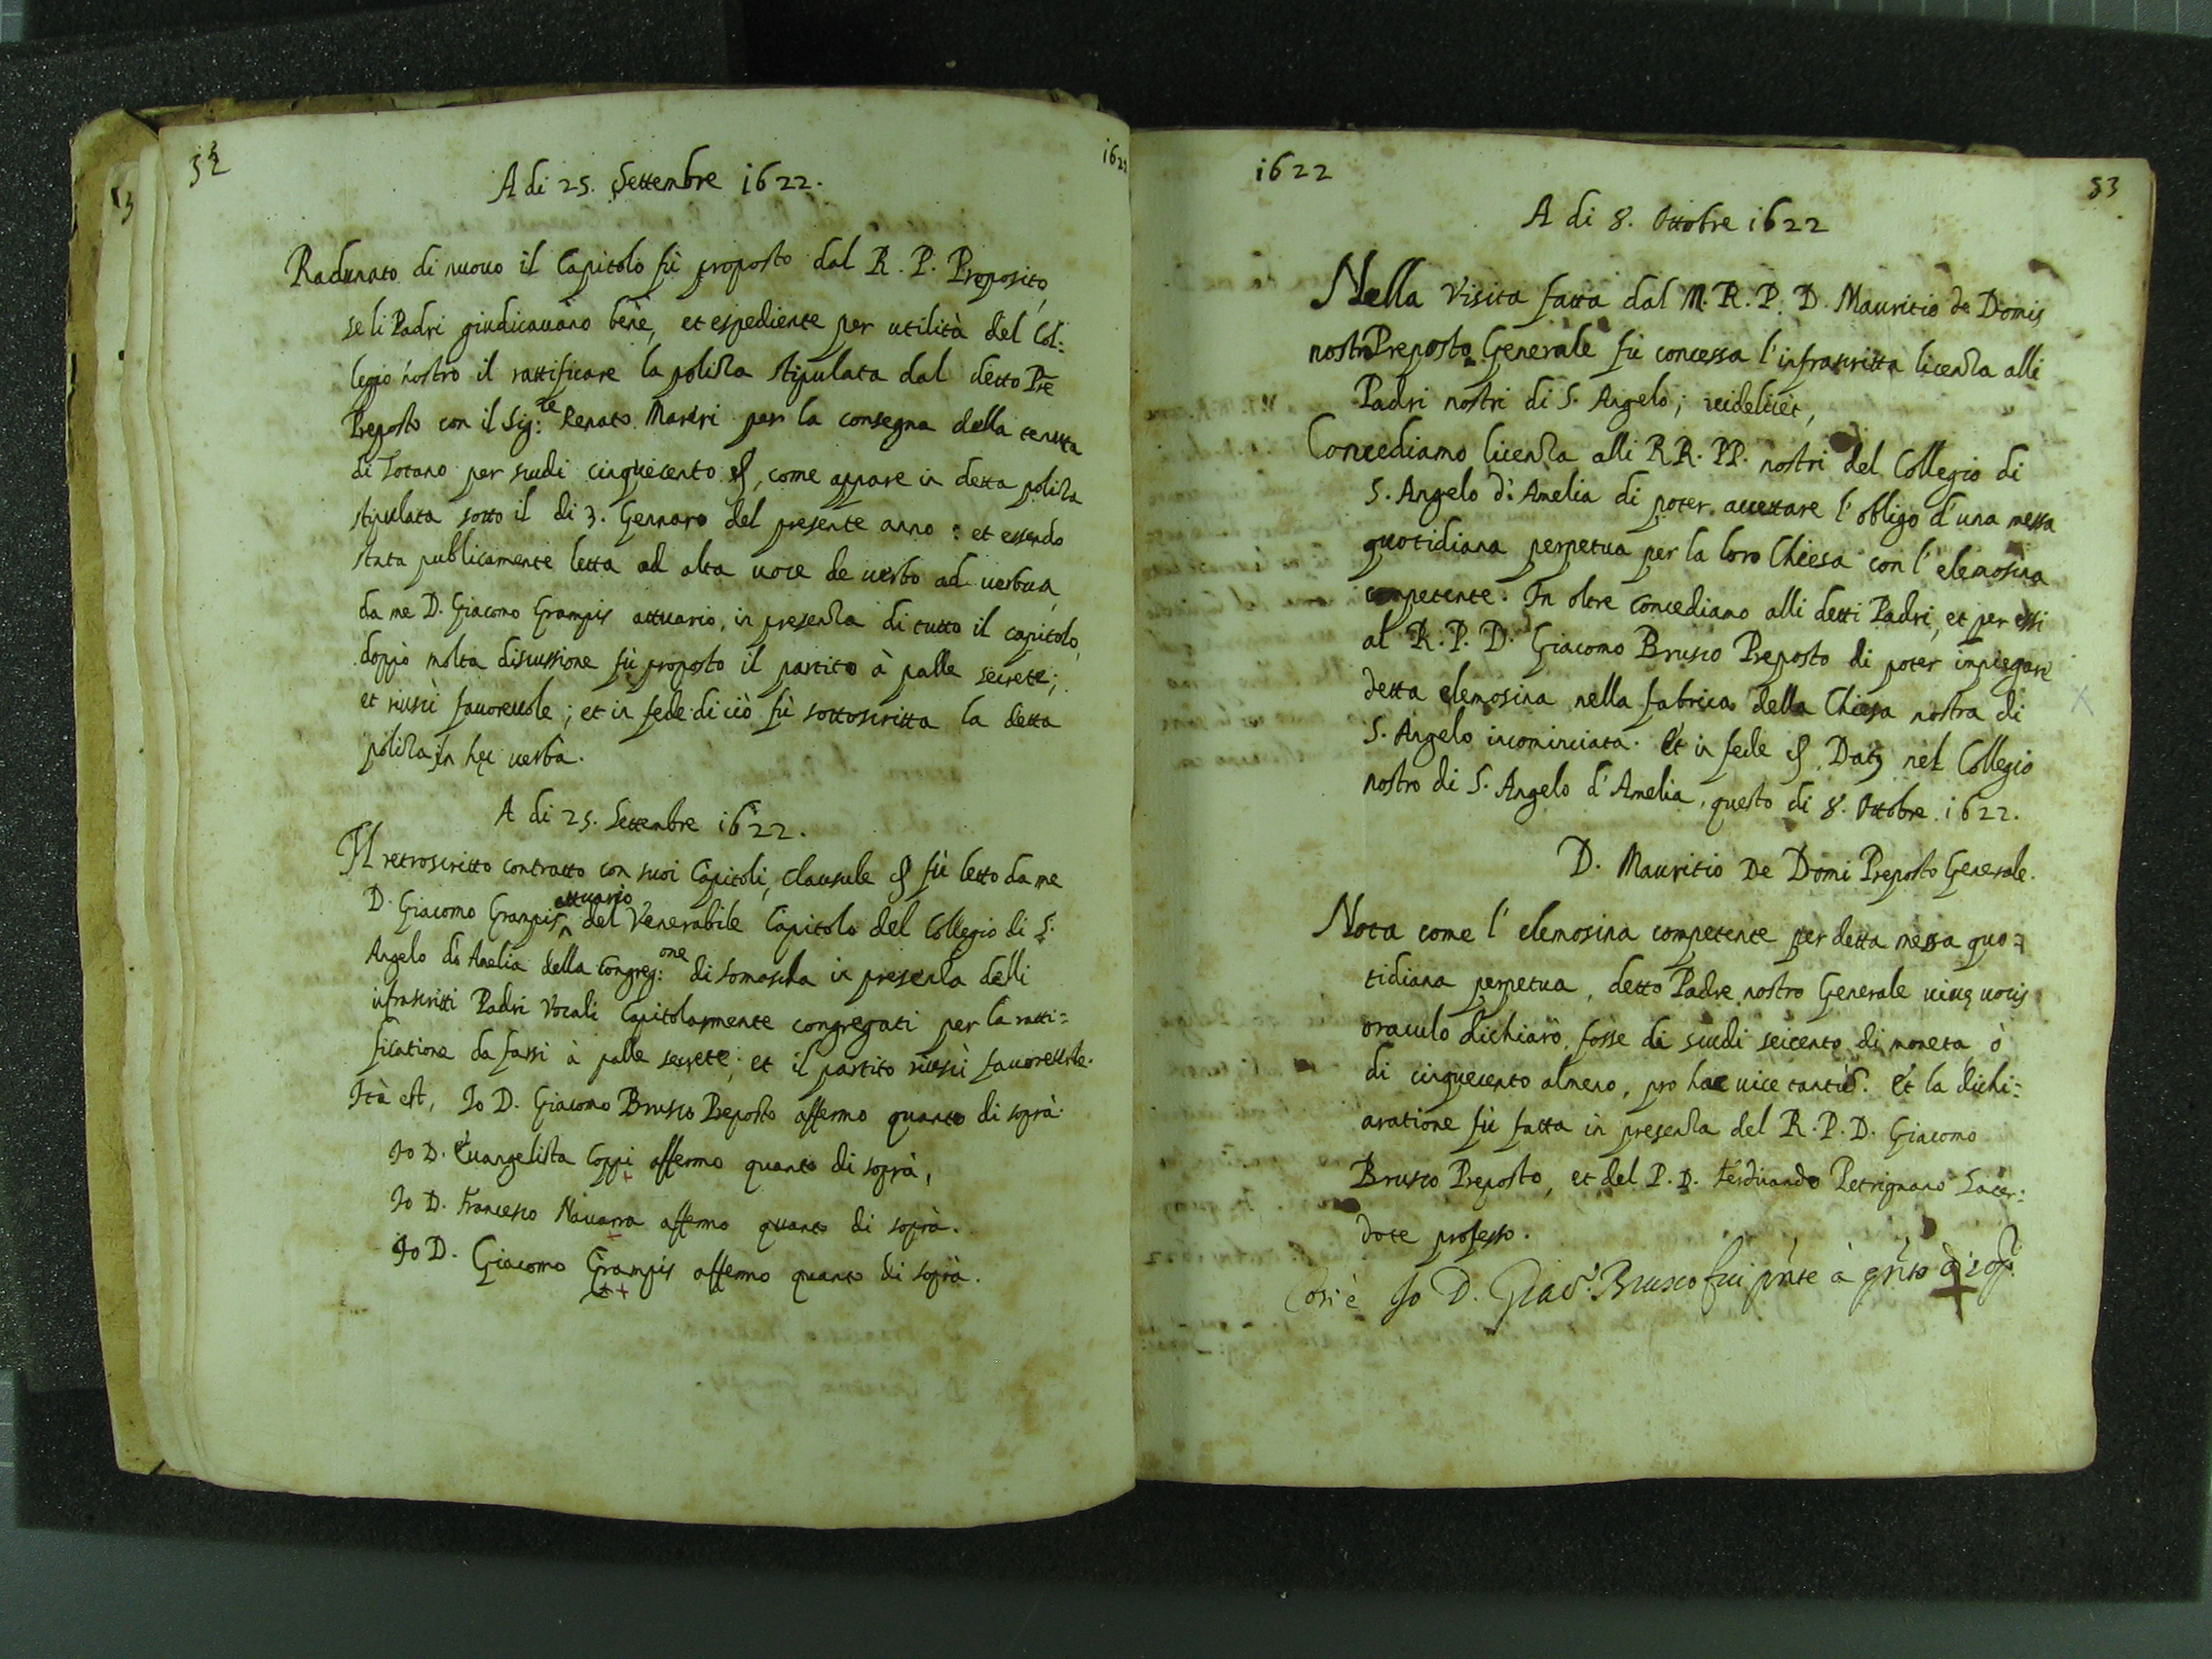 52
1622
A di 25. Settembre 1622.
Radunato di nuouo il Capitolo fù proposto dal R. P. Preposito,
se li Padri giudicauano bene, et espediente per utilità del Col:
legio nostro il rattificare la poliza stipulata dal detto Pre
Preposto con il Sig:re Renato per la consegna della tenuta
di per scudi cinquecento &, come appare in detta poliza
stipulata sotto il di 3. Gennaro del presente anno: et essendo
stata publicamente letta ad alta uoce de uerbo ad uerbum,
da me D. Giacomo Grampis attuario, in presenza di tutto il capitolo,
doppò molta discussione fù proposto il partito à palle secrete;
et riuscì fauoreuole; et in fede di ciò fù sottoscritta la detta
poliza in hęc uerba.
A di 25. Settembre 1622.
Il retroscritto contratto con suoi Capitoli, clausule & fù letto da me
D. Giacomo Grampis attuario del Venerabile Capitolo del Collegio di S.
Angelo di Amelia della Congreg:one di Somascha in presenza delli
infrascritti Padri Vocali Capitolarmente congregati per la ratti=
ficatione da farsi à palle secrete; et il partito riuscì fauoreuole.
Ità est, Io D. Giacomo Brusco Preposto affermo quanto di soprà.
Io D. Euangelista Coppi affermo quanto di soprà,
Io D. Francesco Nauarra affermo quanto di soprà.
Io D. Giacomo Grampis affermo quanto di soprà.
1622
53
A di 8. Ottobre 1622
Nella Visita fatta dal M. R. P. D. Mauritio de Domis
nostro Preposto Generale fù concessa l'infrascritta licenza alli
Padri nostri di S. Angelo; uidelicet,
Concediamo licenza alli RR. PP. nostri del Collegio di
S. Angelo di Amelia di poter accettare l'obligo d'una messa
quotidiana perpetua per la loro Chiesa con l'elemosina
competente. In oltre concediamo alli detti Padri, et per essi
al R. P. D. Giacomo Brusco Preposto di poter impiegare
detta elemosina nella fabrica della Chiesa nostra di
S. Angelo incominciata. Et in fede &. Datę nel Collegio
nostro di S. Angelo d'Amelia, questo di 8. Ottobre. 1622.
D. Mauritio De Domi Preposto Generale.
Nota come l'elemosina competente per detta messa quo=
tidiana perpetua, detto Padre nostro Generale uiuę uocis
oraculo dichiarò, fosse di scudi seicento di moneta, ò
di cinquecento almeno, pro hac uice tantum. Et la dichi=
aratione fù fatta in presenza del R. P. D. Giacomo
Brusco Preposto, et del P. D. Ferdinando Petrignano Sacer:
dote professo.
Cosi è Io D. Giac.o Brusco fui pnte à qnto di sopr.